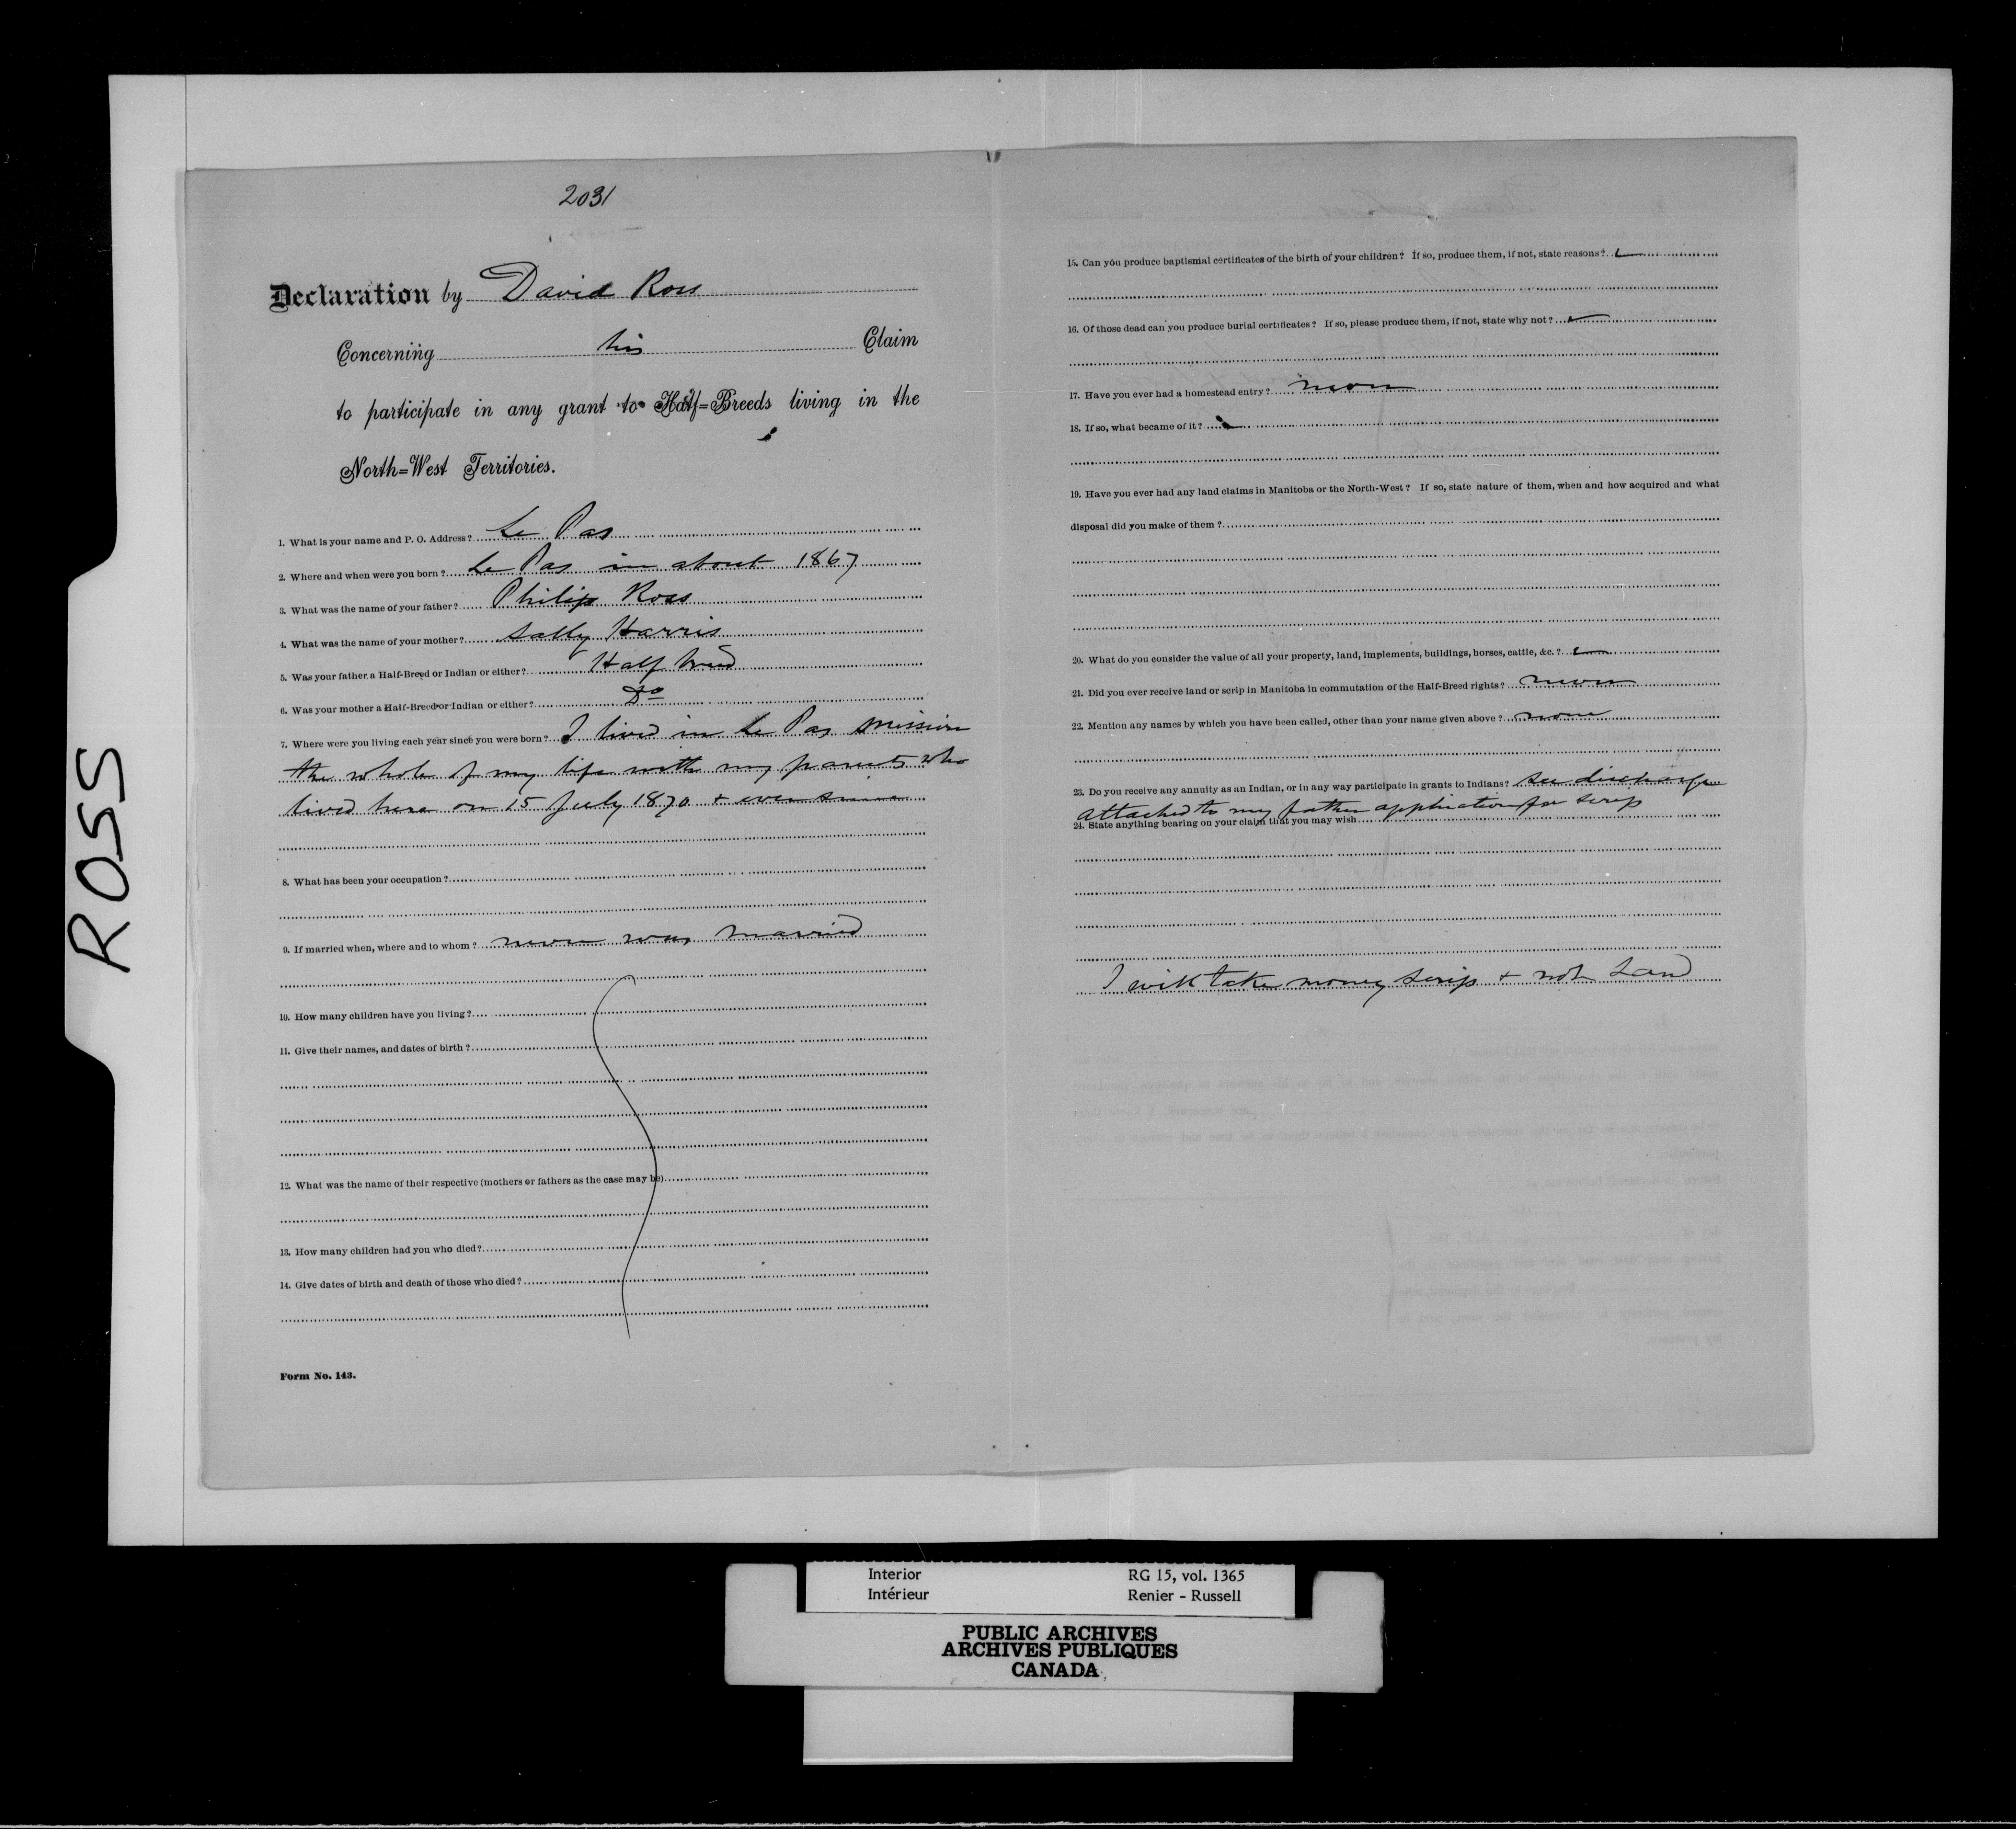 2031
Declaration by David Ross
Concerning his Claim
to participate in any grant to Half=Breeds living in the
North=West Territories.
1. What is your name and P. O. Address? Le Pas
2. Where and when were you born? Le Pas in about 1867
3. What was the name of your father? Philip Ross
4. What was the name of your mother? Sally Harris
5. Was your father a Half-Breed or Indian or either? Half breed
6. Was your mother a Half-Breed or Indian or either? Do
7. Where were you living each year since you were born? I lived in Le Pas Mission
the whole of my life with my parents who
lived here on 15 July 1870 + ever since
8. What has been your occupation?
9. If married when, where and to whom? never was married
10. How many children have you living?
11. Give their names, and dates of birth?
12. What was the name of their respective (mothers or fathers as the case may be)
13. How many children had you who died?
14. Give dates of birth and death of those who died?
Form No. 143.
15. Can you produce baptismal certificates of the birth of your children? If so, produce them, if not, state reasons?
16. Of those dead can you produce burial certificates? If so, please produce them, if not, state why not?
17. Have you ever had a homestead entry? never
18. If so, what became of it?
19. Have you ever had any land claims in Manitoba or the North-West? If so, state nature of them, when and how acquired and what
disposal did you make of them?
20. What do you consider the value of all your property, land, implements, buildings, horses, cattle, &c.?
21. Did you ever receive land or scrip in Manitoba in commutation of the Half-Breed rights? never
22. Mention any names by which you have been called, other than your name given above? none
23. Do you receive any annuity as an Indian, or in any way participate in grants to Indians? see discharge
attached to my father application for scrip
24. State anything bearing on your claim that you may wish
I will take money scrip + not Land
ROSS
Interior RG 15, vol. 1365
Intérieur Renier - Russell
PUBLIC ARCHIVES
ARCHIVES PUBLIQUES
CANADA